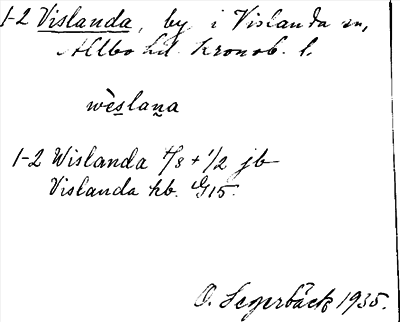 1-2 Vislanda, by i Vislanda sn,
Allbo hd. Kronob. l.
wèslana
1-2 Wislanda 1/8 + 1/2 jb
Vislanda hb. G15.
O. Segerbäck 1935.